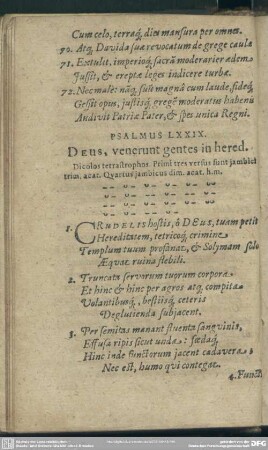 Cum celo, terraq́, dies mansura per omnes.
70. Atq́, Davida suæ revocatum de grege caulæ
71. Extulit, imperioq́, sacrā moderarier ædem
Jussit, & ereptæ leges indicere turbæ.
72. Nec male: náq́, sub magnā cum laude, fideq́
Gessit opus, justisq́, gregē moderatus habenis
Audivit Patriæ Pater, & spes unica Regni.
PSALMUS LXXIX.
DEUS, venerunt gentes in hered.
Dicolos tetrastrophos. Primi tres versus sunt jambici
trim. acat. Quartus jambicus dim. acat. h.m.
1. CRUDELIS hostis, ô DEUS, tuam petit
Hereditatem, tetricoq́, crimine
Templum tuum profanat, & Solymam solo
Æquat ruina flebili.
2. Truncata servorum tuorum corpora
Et hinc & hinc per agros atq́, compita
Volantibusq́, bestiisq́, ceteris
Deglutienda subjacent.
3. Per semitas manant fluenta sanguinis,
Effusa ripis sicut unda: fœdaq́
Hinc inde functorum jacent cadavera;
Nec est, humo qui contegat.